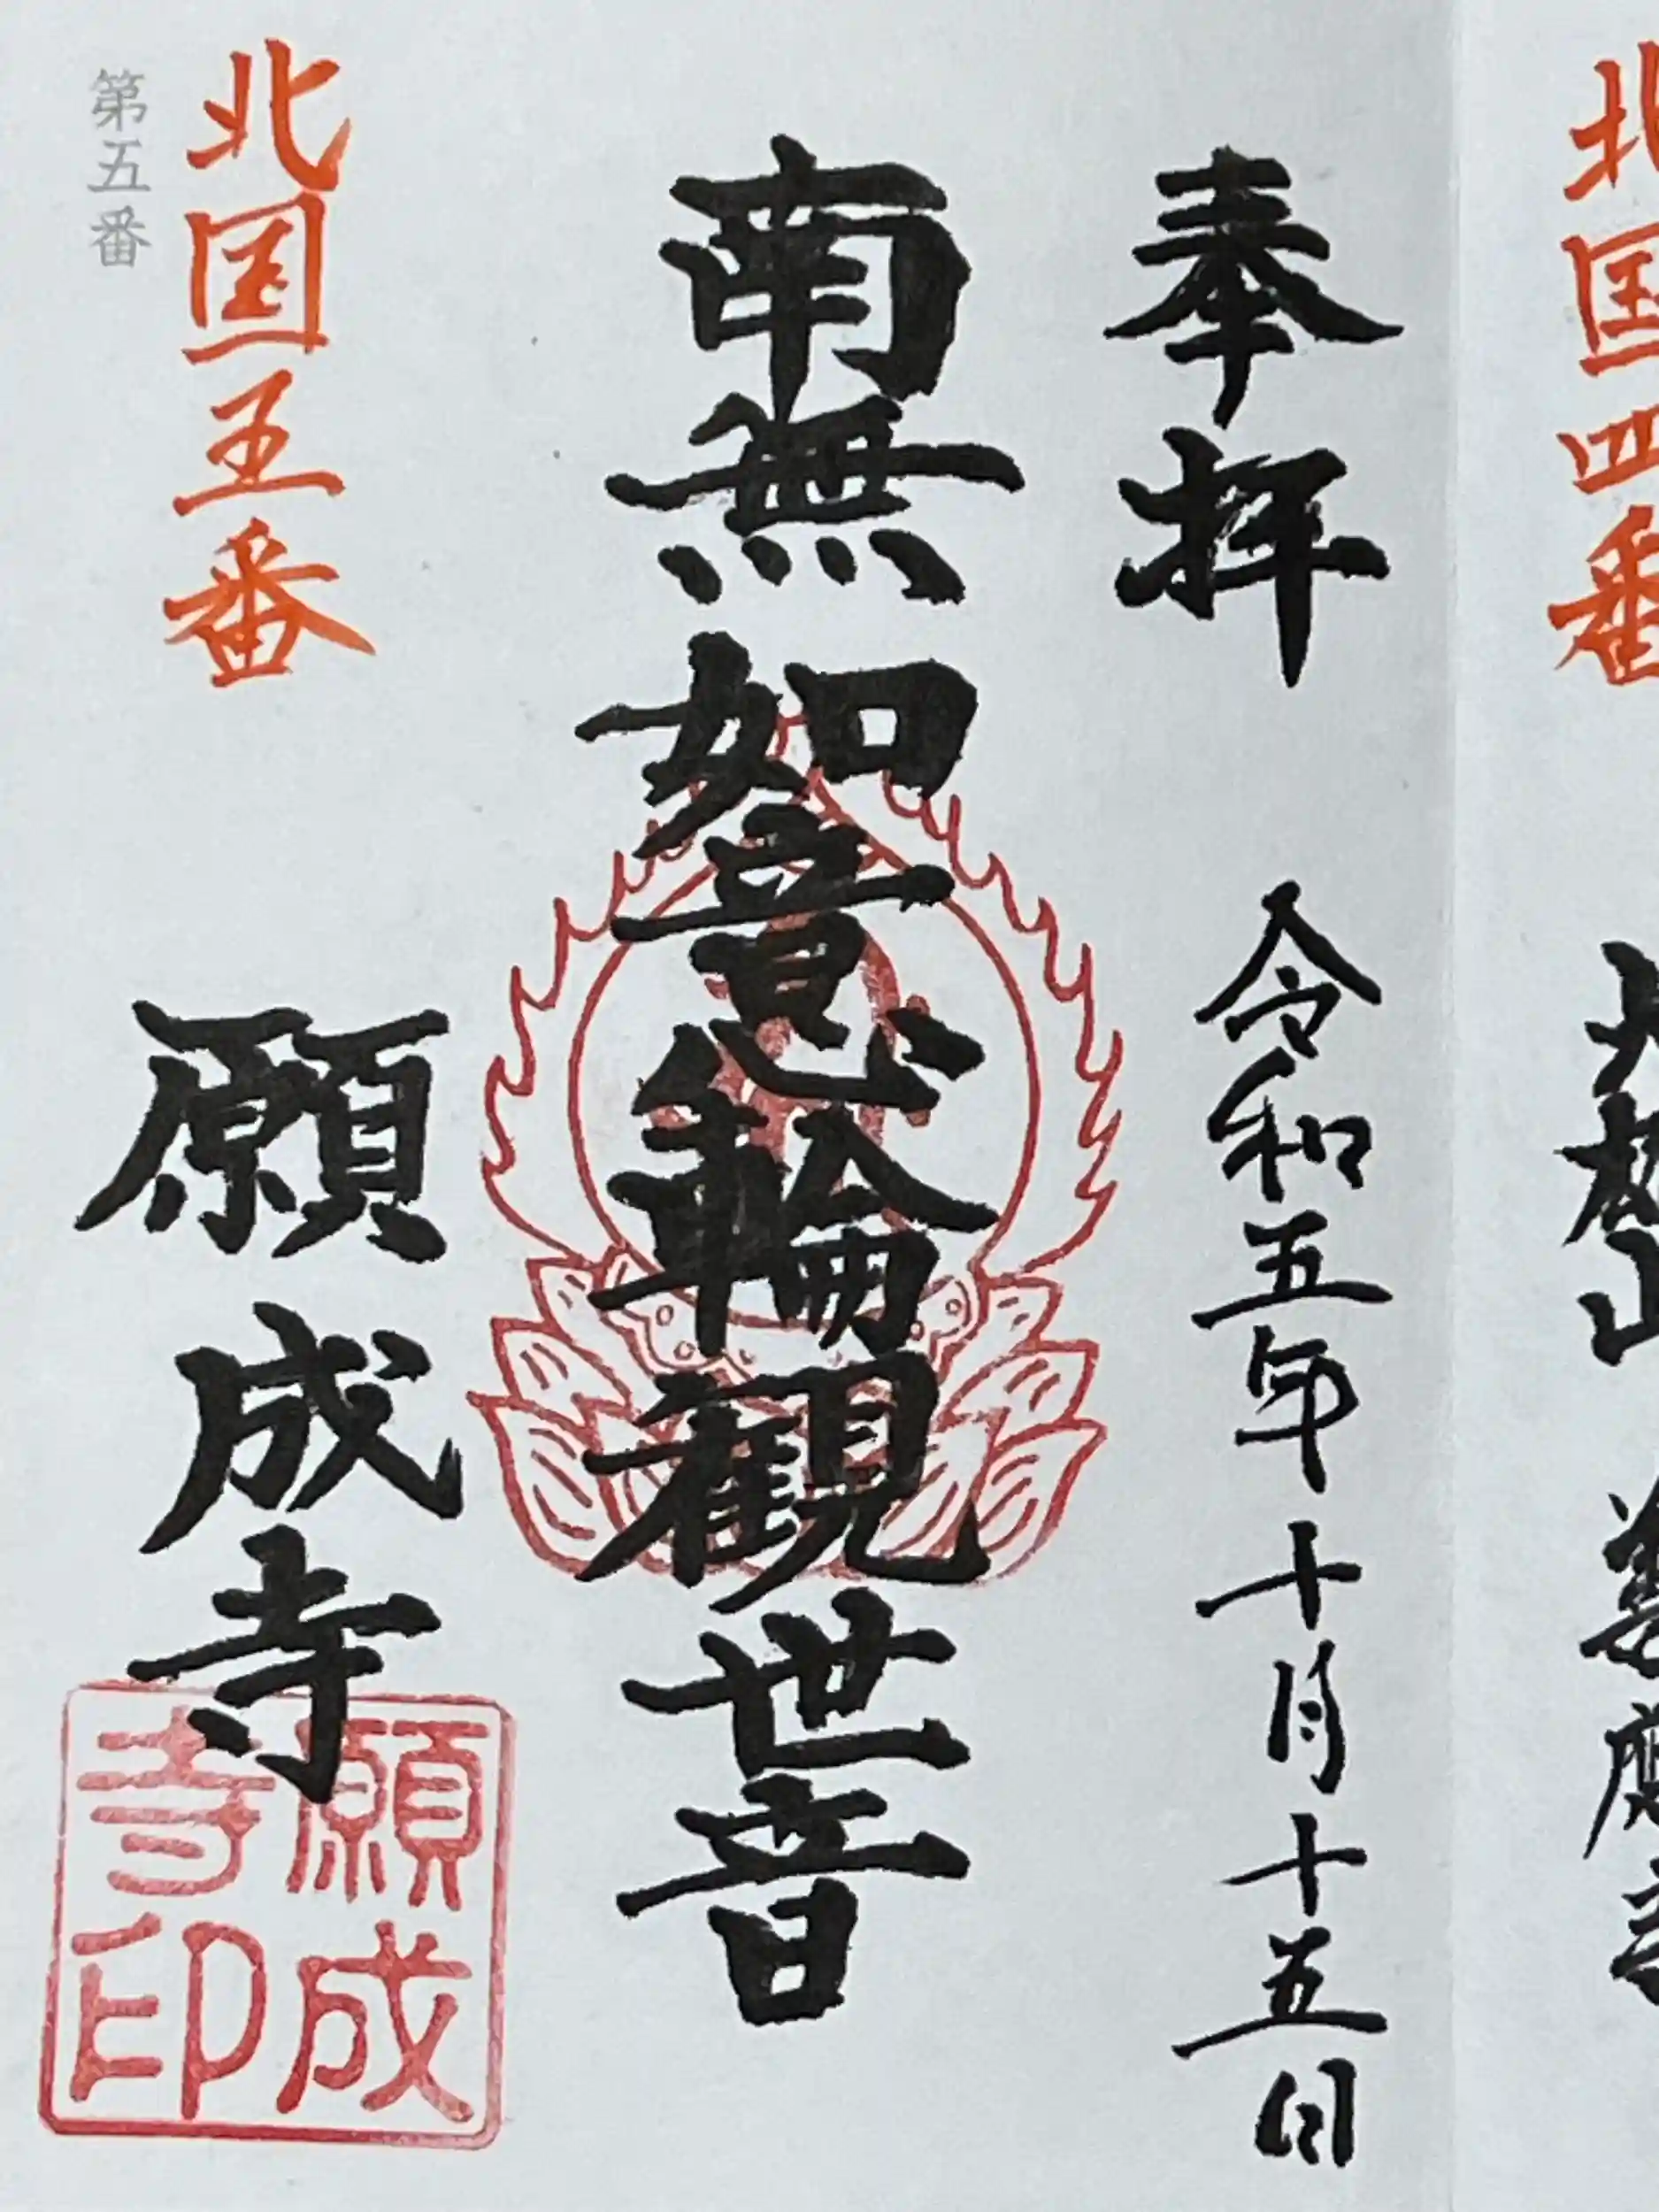 北国四番
奉拝
令和五年十月十五日
南無如意輪観世音
北国五番
願成寺
願成
寺印
第五番